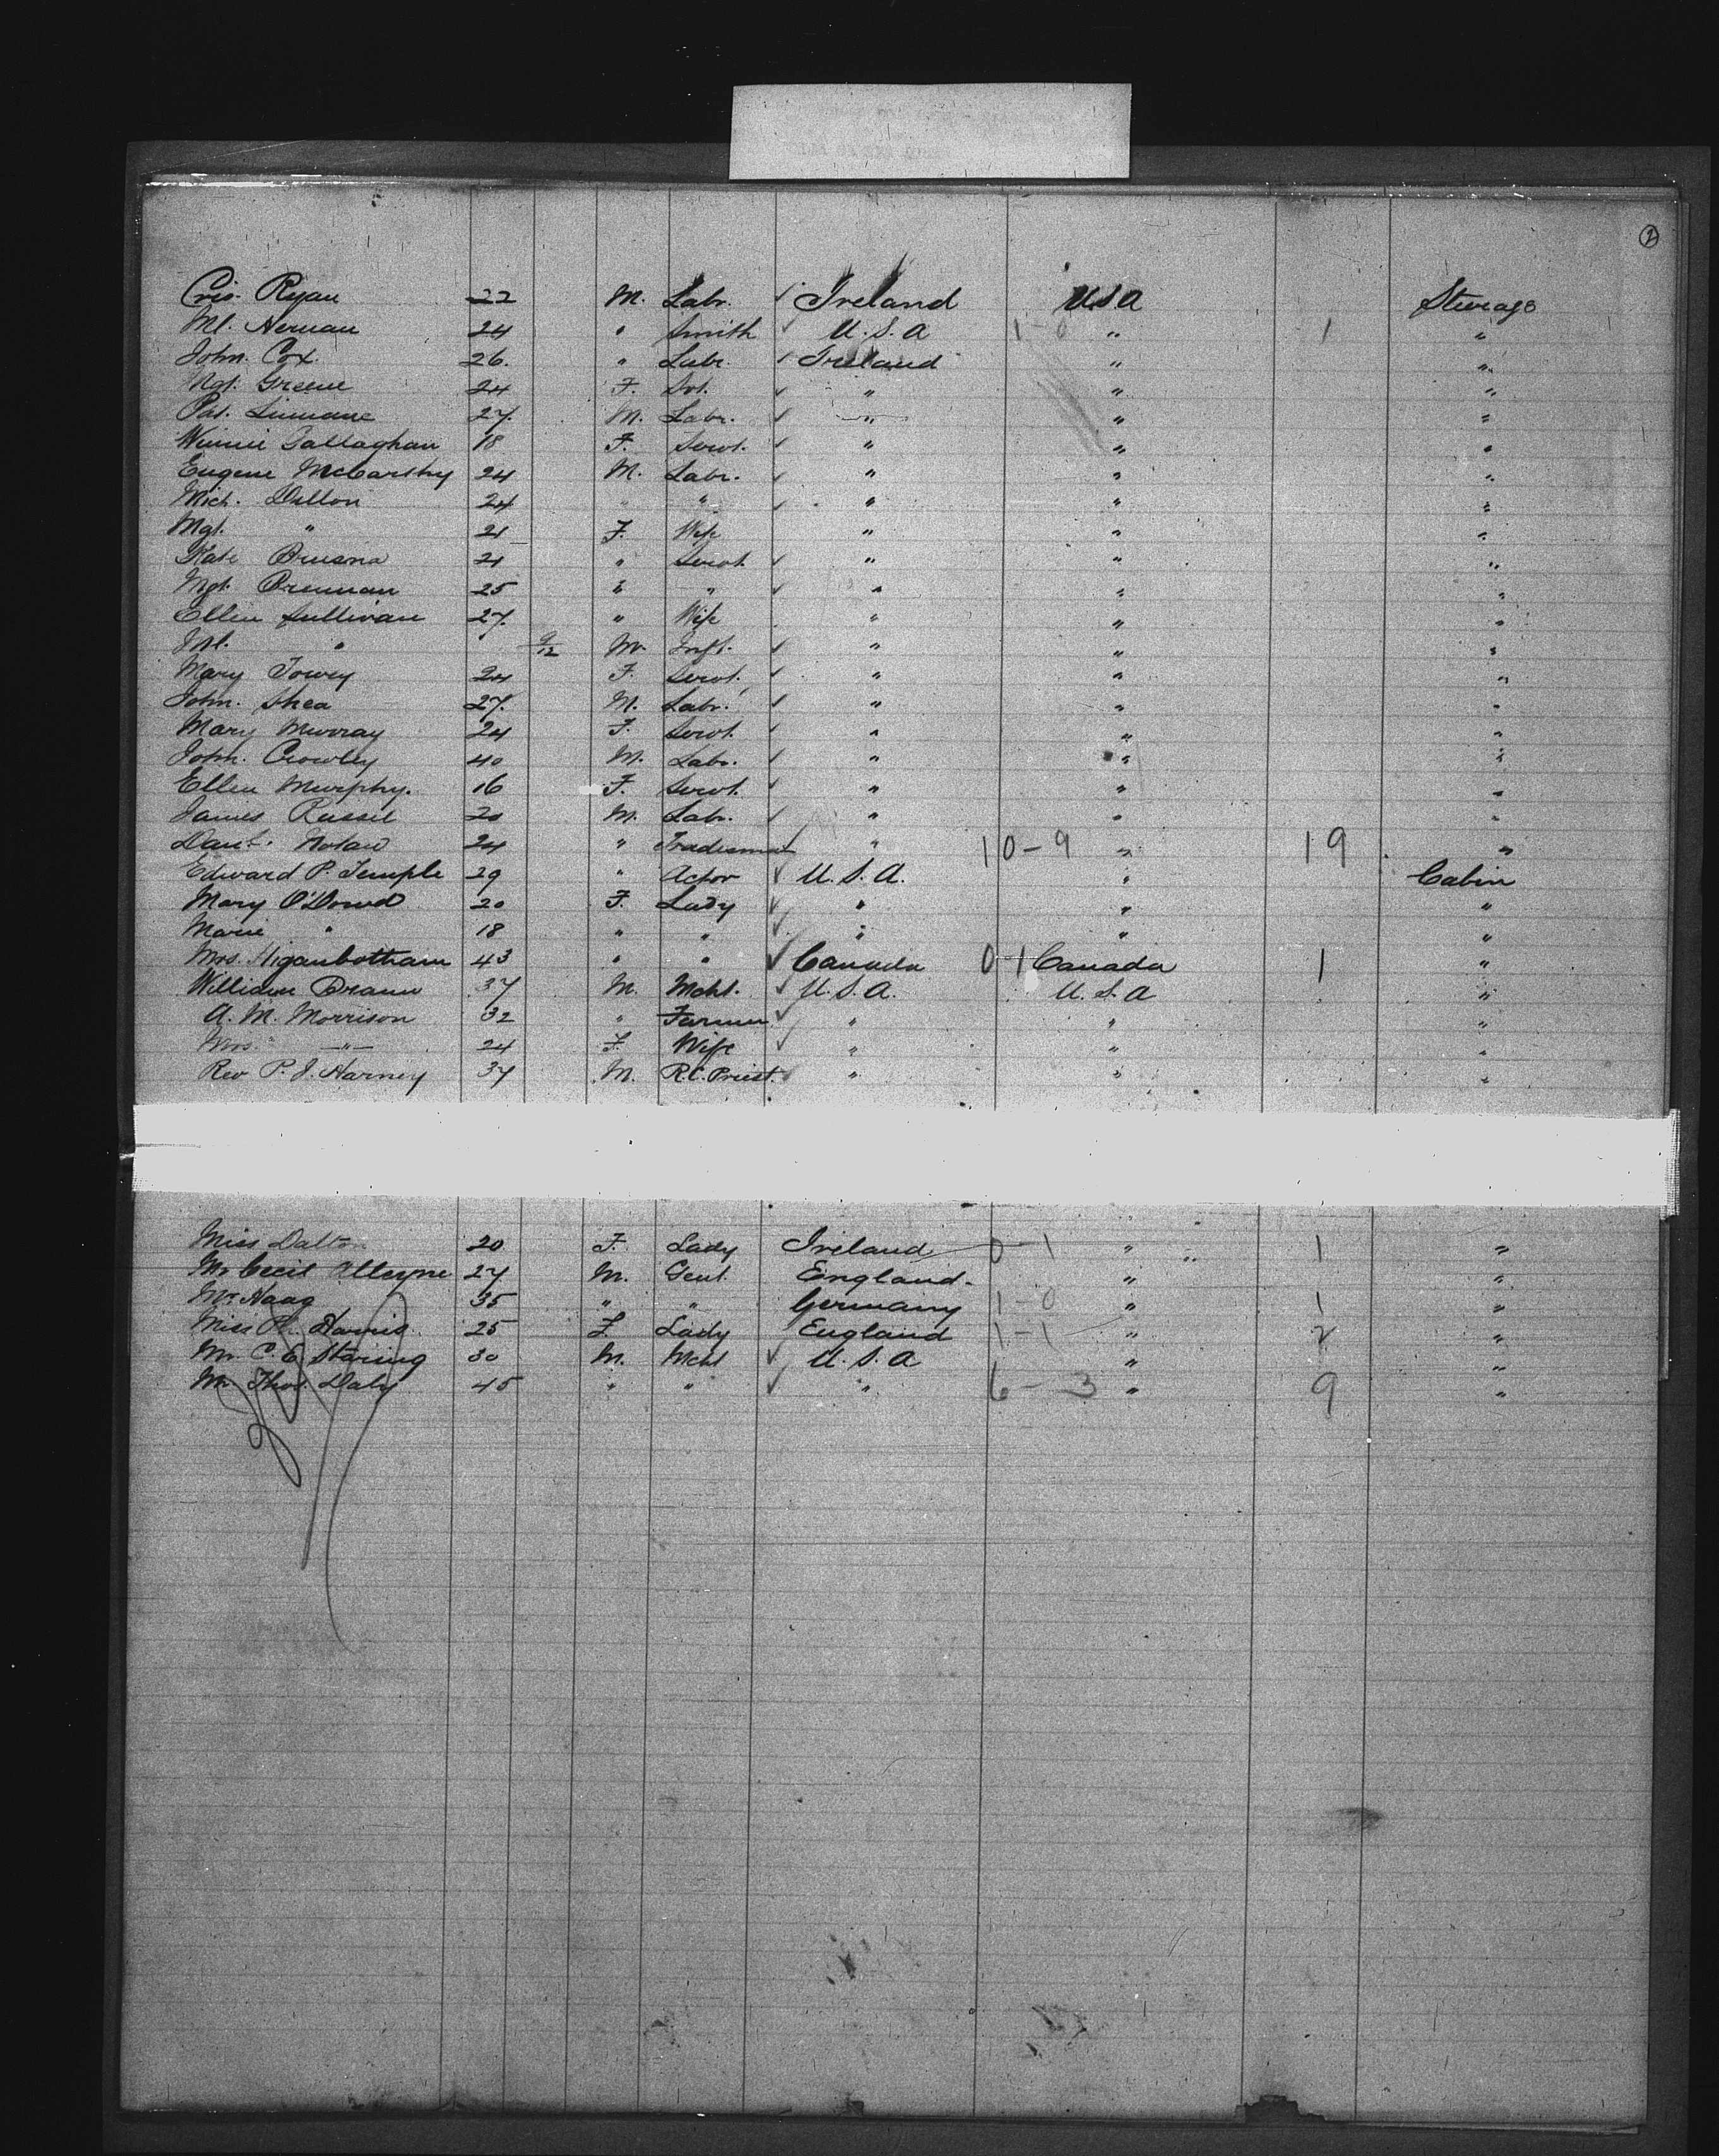 2
Ryan 22 M. Labr. Ireland USA Steerage
Ml. 24 " Smith U.S.A 1-0 " 1 "
John. Cox. 26. " Labr. Ireland " "
Mgt. Greene 24 F. Svt. " " "
Pat. 27. M. Labr. " " "
Winnie Gallaghan 18 F. Servt. " " "
Eugene McCarthy 24 M. Labr. " " "
Mich. Dillon 24 " " " " "
Mgt. " 21 F. Wife " " "
Kate 21 " Servt. " " "
Mgt. Brennan 25 " " " " "
Ellen Sullivan 27. " Wife " " "
Ml. " 9/12 M. Inft. " " "
Mary Towey 24 F. Servt. " " "
John. Shea 27. M. Labr. " " "
Mary Murray 24 F. Servt. " " "
John. Crowley 40 M. Labr. " " "
Ellen Murphy. 16 F. Servt. " " "
James Russil 20 M. Labr. " " "
Danl. Nolan 24 " Tradesman " 10-9 " 19 "
Edward P. Temple 29 " Actor U.S.A. " Cabin
Mary O'Dowd 20 F. Lady " " "
Marie " 18 " " " " "
Mrs. Higanbotham 43 " " Canada 0-1 Canada 1 "
William Braun 37 M. Mcht. U.S.A. U.S.A "
A. M. Morrison 32 " Farmer " " "
Mrs. " 24 F. Wife " " "
Rev P. J. Harney 37 M. R.C. Priest. " " "
Miss Dalton 20 F. Lady Ireland 0-1 " " 1 "
Mr Cecil Alleyne 27 M. Gent. England- " "
Mr Haag 35 " " Germany 1-0 " 1 "
Miss Harris 25 F. Lady England 1-1 " 2 "
Mr. C. E. Staring 30 M. Mcht U.S.A " "
Mr Thos. Daly 45 " " " 6-3 " 9 "